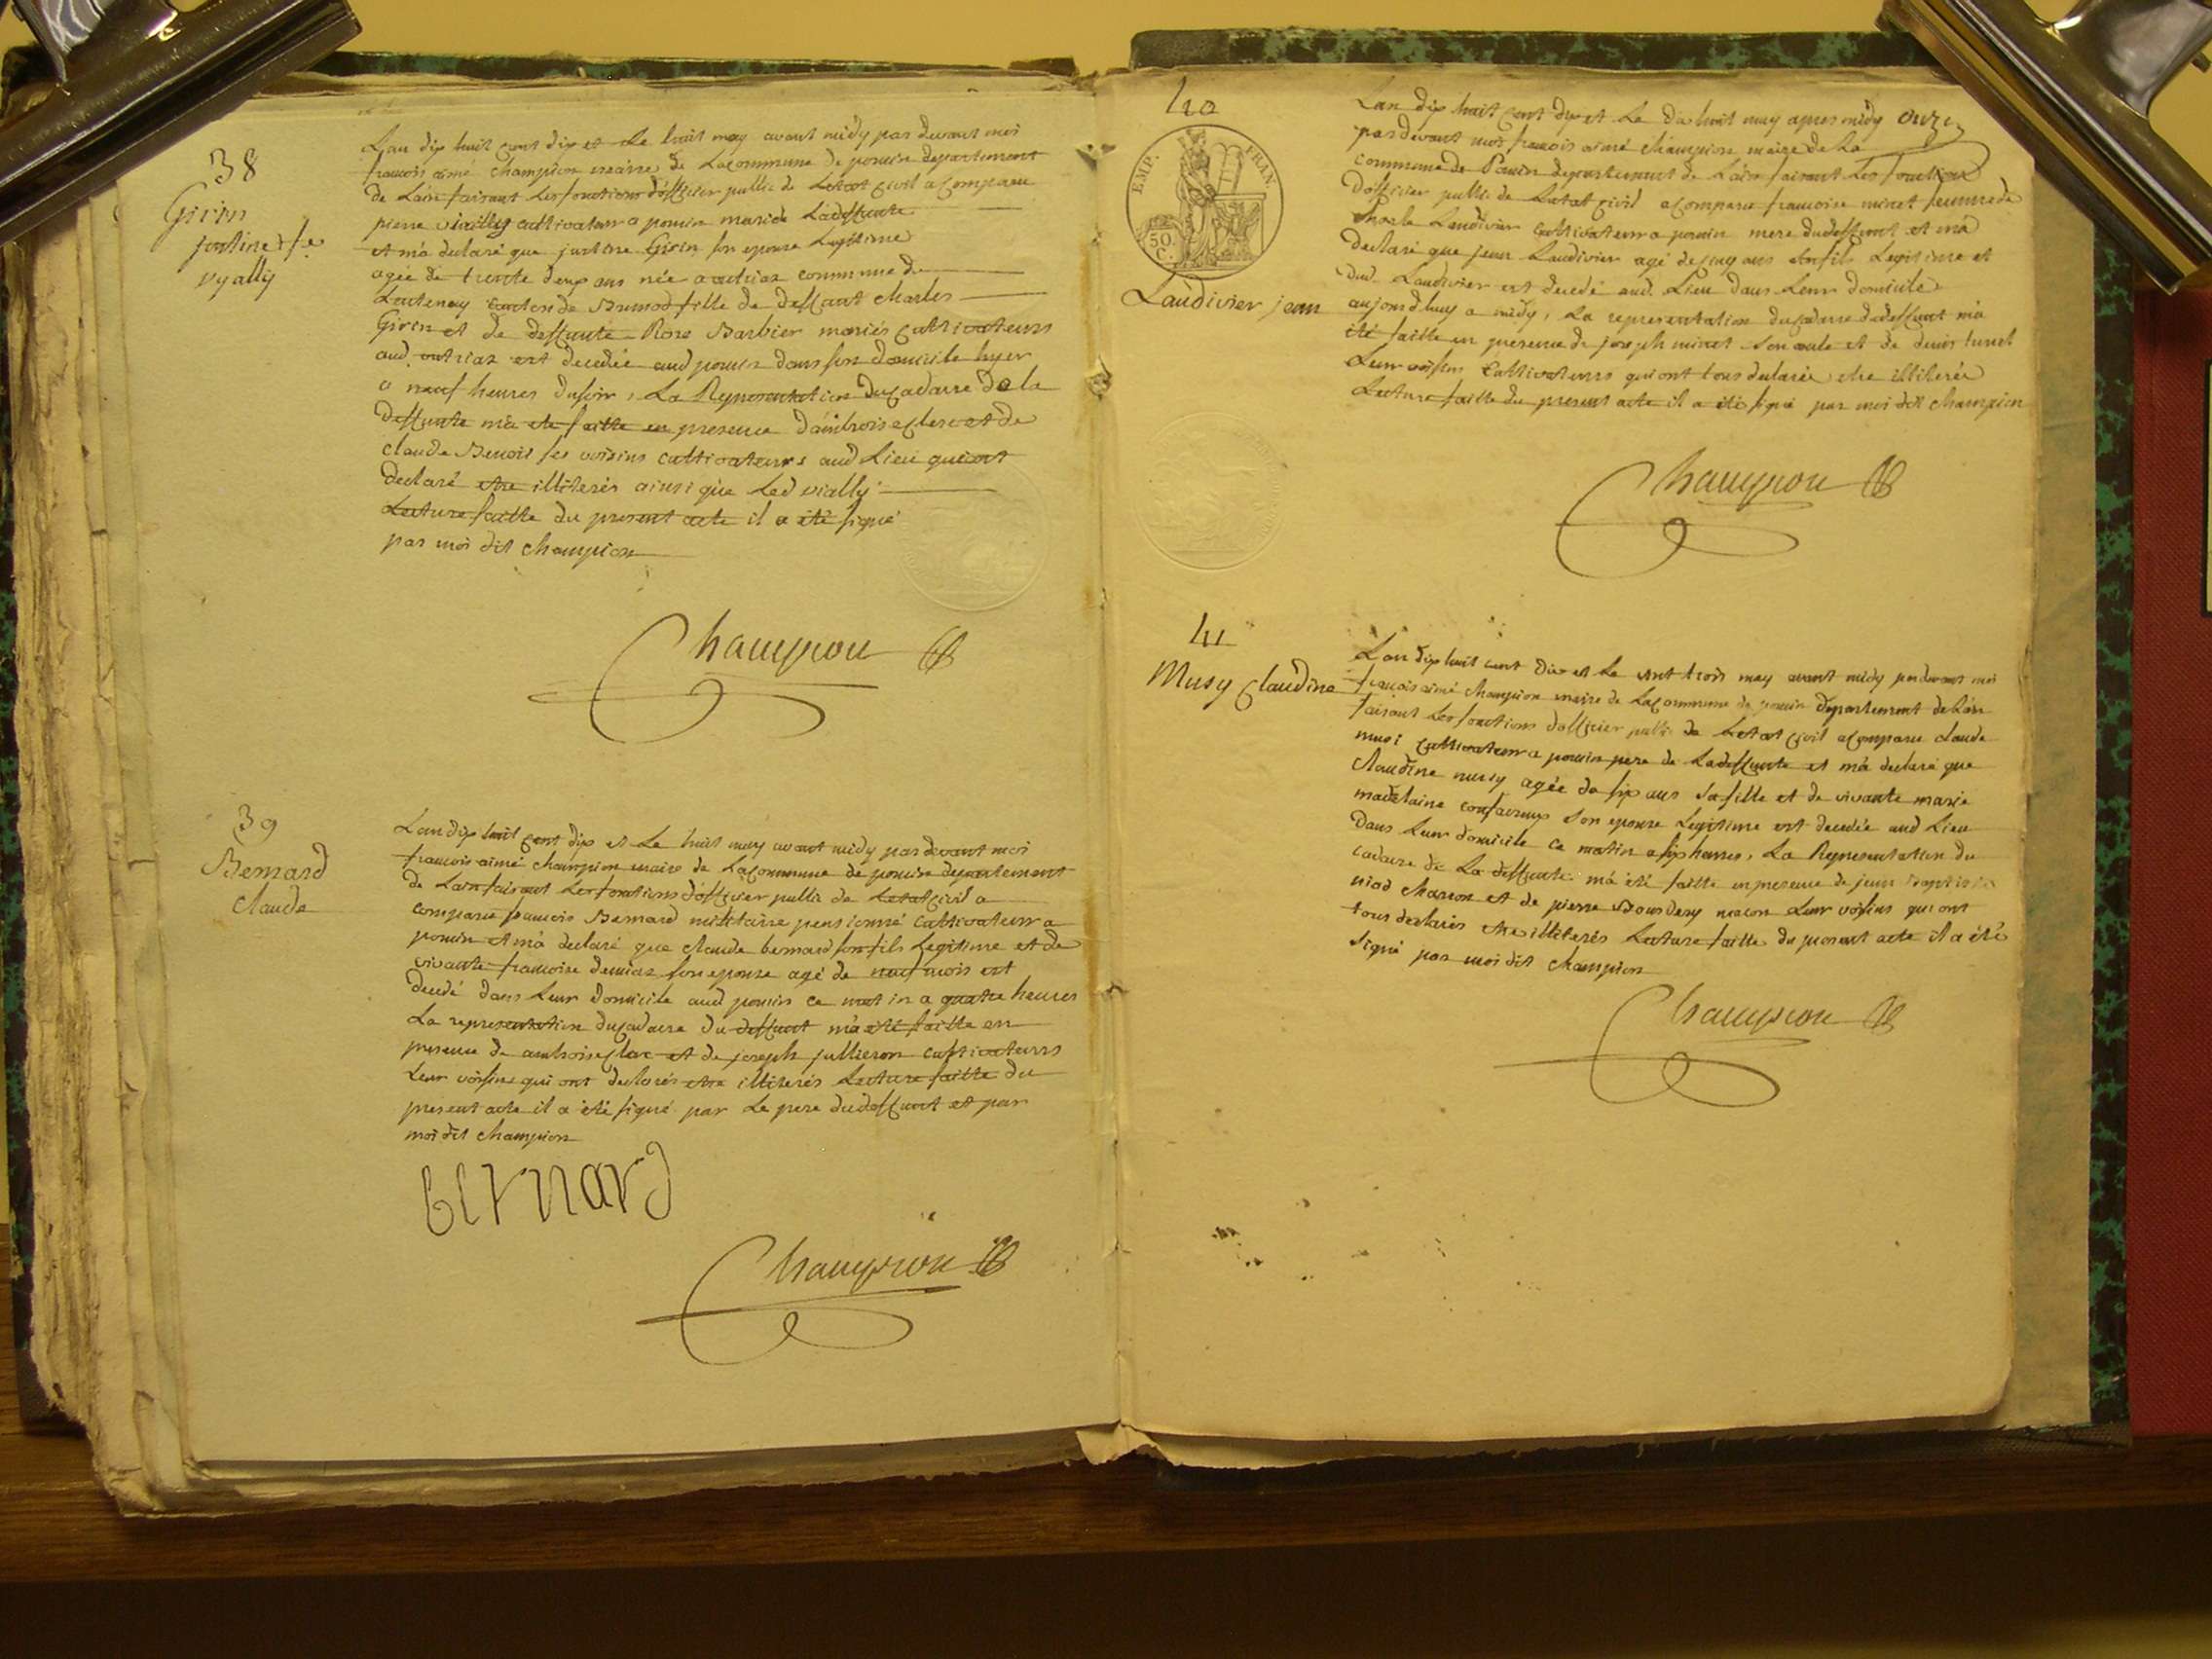 38
Girin
justine fe
vyally
Lan dix huit cent dix et Le huit may avant midy par devant moi
francois aimé champion maire de Lacommune de poncin departement
de Lain faisant Les fonctions dofficier public de Letat civil a comparu
pierre vially cultivateur a poncin mari de Ladeffunte
et m'a declaré que justine Girin son epouse Legitime
agée de trente deux ans née a outriaz commune de
Lantenay canton de Brenod fille de deffunt charles
Girin et de deffunte Rose Barbier mariés cultivateurs
aud. outriaz est decedée aud poncin dans son domicile hyer
a neuf heures du soir, La Representation du cadavre de la
deffunte m'a ete faitte en presence d'ambroise clerc et de
claude Benoit ses voisins cultivateurs aud Lieu qui ont
declaré etre illiterés ainsi que Led vially
Lecture faitte du present acte il a été signé
par moi dit champion
Champion
39
Bernard
claude
Lan dix huit cent dix et Le huit may avant midy par devant moi
francois aimé champion maire de Lacommune de poncin departement
de Lain faisant Les fonctions dofficier public de Letat civil a
comparu francois Bernard militaire pensionné cultivateur a
poncin et m'a declaré que claude bernard son fils Legitime et de
vivante francoise son epouse agé de neuf mois est
decedé dans Leur domicile aud poncin ce matin a quatre heures
La representation du cadavre du deffunt m'a été faitte en
presence de ambroise clerc et de joseph jullieron cultivateurs
Leur voisins qui ont declarés etre illiterés Lecture faitte du
present acte il a été signé par Le pere du deffunt et par
moi dit champion
bernard
Champion
40
EMP. FRAN.
50 C.
Laudivier jean
Lan dix huit cent dix et Le dix huit may apres midy onze
par devant moi francois aimé champion maire de La
commune de Poncin departement de Lain faisant Les fonctions
dofficier public de Letat civil a comparu francoise minet femme de
Laudivier cultivateur a poncin mere du deffunt et m'a
declaré que jean Laudivier agé de cinq ans son fils Legitime et
dud. Laudivier est decedé aud. Lieu dans Leur domicile
aujourdhuy a midy, La representation du cadavre du deffunt m'a
été faitte en presence de joseph minet son oncle et de denis
Leur voisins Cultivateurs qui ont tous declarés etre illiterés
Lecture faitte du present acte il a été signé par moi dit champion
Champion
41
Musy claudine
Lan dix huit cent dix et Le vint trois may avant midy par devant moi
francois aimé champion maire de Lacommune de poncin departement de Lain
faisant Les fonctions dofficier public de Letat civil a comparu claude
musi cultivateur a poncin pere de Ladeffunte et m'a declaré que
claudine musy agée de six ans sa fille et de vivante marie
madelaine son epouse Legitime est decedée aud Lieu
dans Leur domicile ce matin a six heures, La Representation du
cadavre de La deffunte m'a été faitte en presence de jean Baptiste
niod charon et de pierre macon Leur voisins qui ont
tous declarés etre illiterés Lecture faitte du present acte il a été
signé par moi dit champion
Champion